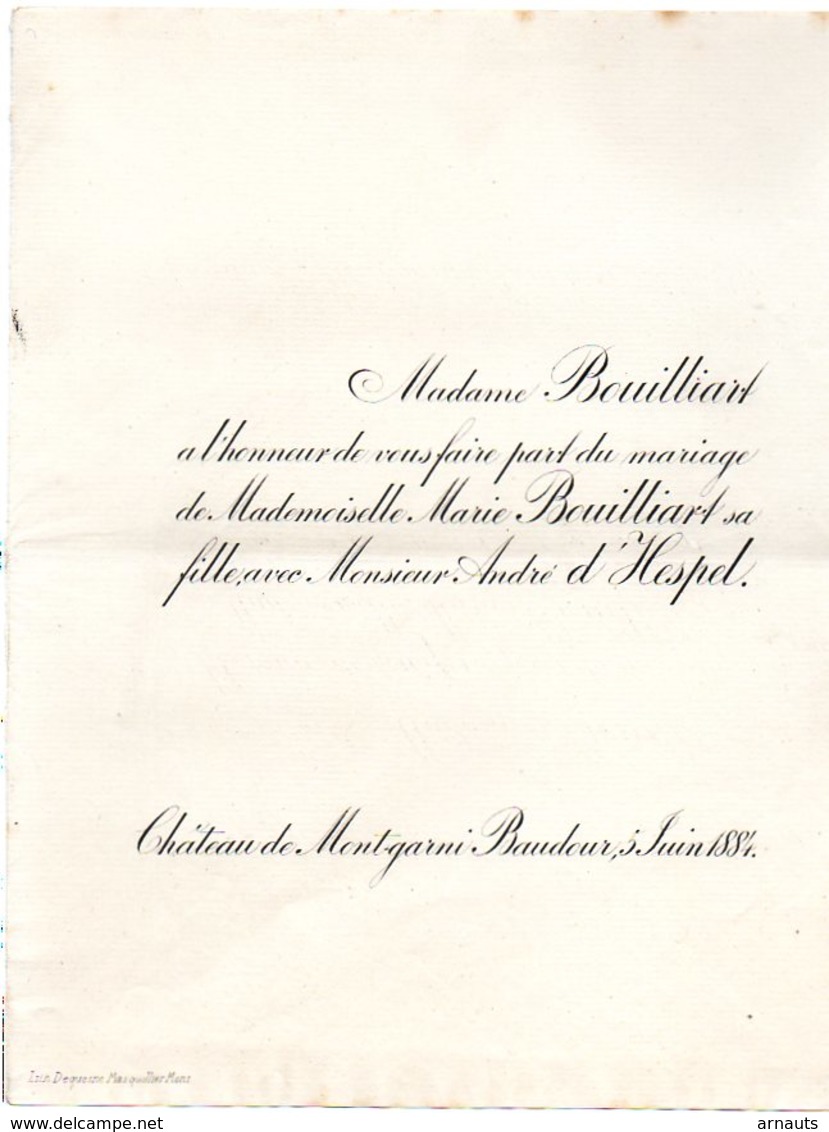 Madame Bouilliart
a l'honneur de vous faire part du mariage
de Mademoiselle Marie Bouilliart sa
fille, avec Monsieur André d'Hespel.
Château de Mont-garni Baudour, 5 Juin 1884.
Dequesne Masquillier Mons
delcampe.net
arnauts